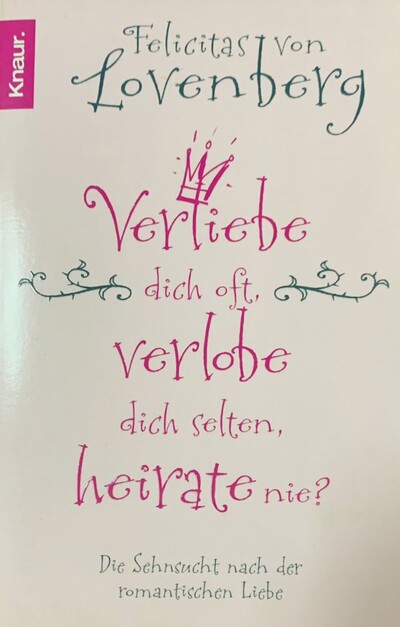 Knaur.
Felicitas von
Lovenberg
Verliebe
dich oft,
verlobe
dich selten,
heirate nie?
Die Sehnsucht nach der
romantischen Liebe